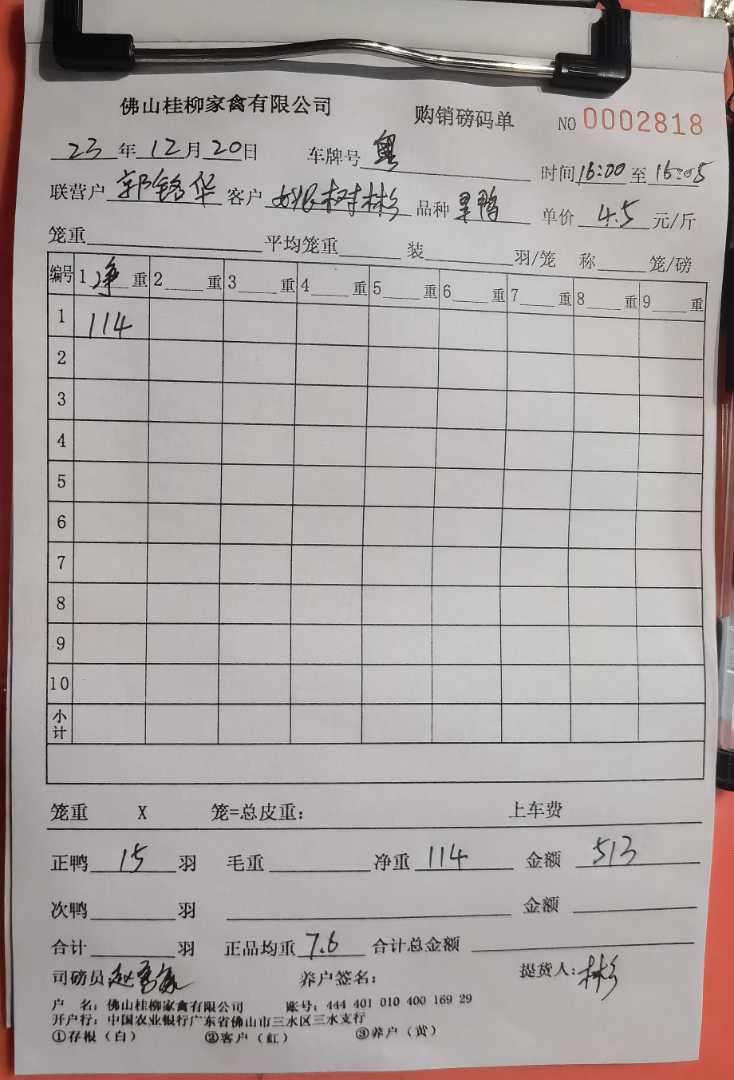 佛山桂柳家禽有限公司 购销磅码单 NO 0002818
23年12月20日 车牌号 粤 时间16:00至16:05
联营户 郭铭华 客户 树彬 品种 鸭 单价 4.5 元/斤
笼重 平均笼重 装 羽/笼 称 笼/磅
编号 1净重 2重 3重 4重 5重 6重 7重 8重 9重
1 114
2
3
4
5
6
7
8
9
10
小计
笼重 X 笼=总皮重: 上车费
正鸭 15 羽 毛重 净重 114 金额 513
次鸭 羽 金额
合计 羽 正品均重 7.6 合计总金额
司磅员 赵 养户签名: 提货人:彬
户 名: 佛山桂柳家禽有限公司 账号: 444 401 010 400 169 29
开户行: 中国农业银行广东省佛山市三水区三水支行
①存根(白) ②客户(红) ③养户(黄)